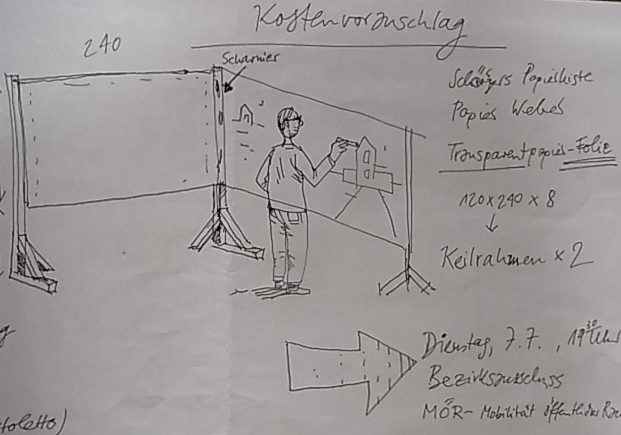 Kostenvoranschlag
240
Scharnier
Schärfers Papierkiste
Papier Weber
Transparentpapier-Folie
120x240 x 8
Keilrahmen x 2
Dienstag, 7.7., 19 30 Uhr
Bezirksausschuss
MÖR- Mobilität öffentlicher